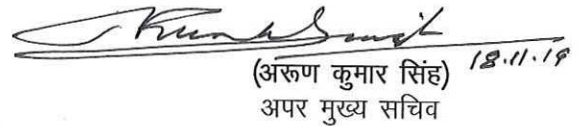 18.11.19
(अरूण कुमार सिंह)
अपर मुख्य सचिव